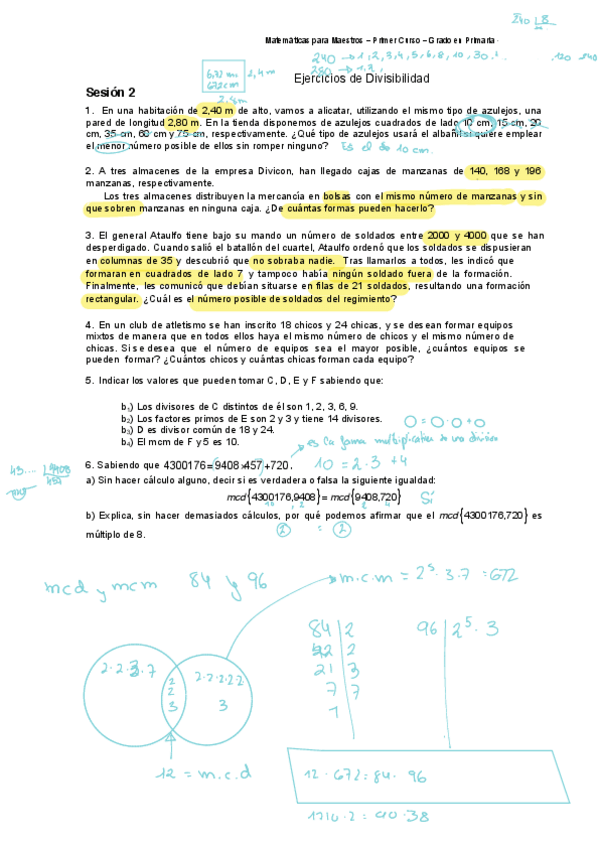 240 | 8
Matemáticas para Maestros – Primer Curso – Grado en Primaria
240 → 1, 2, 3, 4, 5, 6, 8, 10, 30..
120 240
280 → 1, 2,
2,4 m
Ejercicios de Divisibilidad
Sesión 2
1. En una habitación de 2,40 m de alto, vamos a alicatar, utilizando el mismo tipo de azulejos, una
pared de longitud 2,80 m. En la tienda disponemos de azulejos cuadrados de lado 10 cm, 15 cm, 20
cm, 35 cm, 60 cm y 75 cm, respectivamente. ¿Qué tipo de azulejos usará el albañil si quiere emplear
el menor número posible de ellos sin romper ninguno? Es el de 10 cm.
2. A tres almacenes de la empresa Divicon, han llegado cajas de manzanas de 140, 168 y 196
manzanas, respectivamente.
Los tres almacenes distribuyen la mercancía en bolsas con el mismo número de manzanas y sin
que sobren manzanas en ninguna caja. ¿De cuántas formas pueden hacerlo?
3. El general Ataulfo tiene bajo su mando un número de soldados entre 2000 y 4000 que se han
desperdigado. Cuando salió el batallón del cuartel, Ataulfo ordenó que los soldados se dispusieran
en columnas de 35 y descubrió que no sobraba nadie. Tras llamarlos a todos, les indicó que
formaran en cuadrados de lado 7 y tampoco había ningún soldado fuera de la formación.
Finalmente, les comunicó que debían situarse en filas de 21 soldados, resultando una formación
rectangular. ¿Cuál es el número posible de soldados del regimiento?
4. En un club de atletismo se han inscrito 18 chicos y 24 chicas, y se desean formar equipos
mixtos de manera que en todos ellos haya el mismo número de chicos y el mismo número de
chicas. Si se desea que el número de equipos sea el mayor posible, ¿cuántos equipos se
pueden formar? ¿Cuántos chicos y cuántas chicas forman cada equipo?
5. Indicar los valores que pueden tomar C, D, E y F sabiendo que:
b₁) Los divisores de C distintos de él son 1, 2, 3, 6, 9.
b₂) Los factores primos de E son 2 y 3 y tiene 14 divisores.
b₃) D es divisor común de 18 y 24.
b₄) El mcm de F y 5 es 10.
→ es la forma multiplicativa de una división
6. Sabiendo que 4300176=9408x457+720. 10 = 2 · 3 + 4
a) Sin hacer cálculo alguno, decir si es verdadera o falsa la siguiente igualdad:
mcd{4300176,9408}= mcd{9408,720} Sí
b) Explica, sin hacer demasiados cálculos, por qué podemos afirmar que el mcd{4300176,720} es
múltiplo de 8. 2 = 2
mcd y mcm 84 y 96 → m.c.m = 2⁵ · 3 · 7 = 672
84 | 2 96 | 2⁵ · 3
42 | 2
21 | 3
7 | 7
1
2·2·3·7
2 2 3
2·2·2·2·2·
3
12 = m.c.d
12 · 672 = 84 · 96